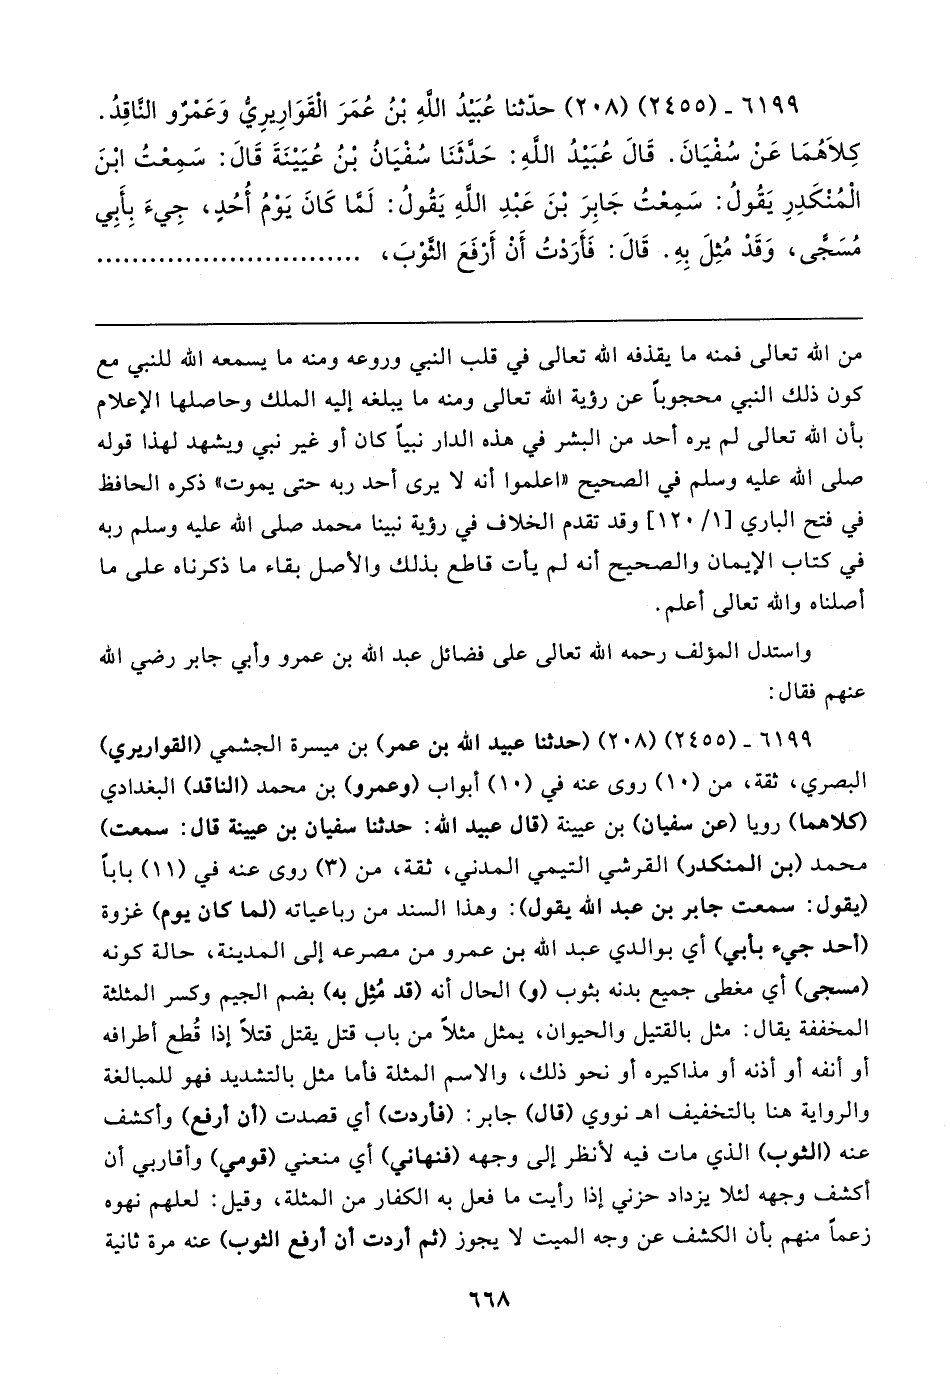 ٦١٩٩ ـ (٢٤٥٥) (٢٠٨) حدّثنا عُبَيْدُ اللَّهِ بْنُ عُمَرَ الْقَوَارِيرِيُّ وَعَمْرٌو النَّاقِدُ.
كِلاَهُمَا عَنْ سُفْيَانَ. قَالَ عُبَيْدُ اللَّهِ: حَدَّثَنَا سُفْيَانُ بْنُ عُيَيْنَةَ قَالَ: سَمِعْتُ ابْنَ
الْمُنْكَدِرِ يَقُولُ: سَمِعْتُ جَابِرَ بْنَ عَبْدِ اللَّهِ يَقُولُ: لَمَّا كَانَ يَوْمُ أُحُدٍ، جِيءَ بِأَبِي
مُسَجًّى، وَقَدْ مُثِلَ بِهِ. قَالَ: فَأَرَدْتُ أَنْ أَرْفَعَ الثَّوْبَ، ..............................
من الله تعالى فمنه ما يقذفه الله تعالى في قلب النبي وروعه ومنه ما يسمعه الله للنبي مع
كون ذلك النبي محجوباً عن رؤية الله تعالى ومنه ما يبلغه إليه الملك وحاصلها الإعلام
بأن الله تعالى لم يره أحد من البشر في هذه الدار نبياً كان أو غير نبي ويشهد لهذا قوله
صلى الله عليه وسلم في الصحيح «اعلموا أنه لا يرى أحد ربه حتى يموت» ذكره الحافظ
في فتح الباري [١/ ١٢٠] وقد تقدم الخلاف في رؤية نبينا محمد صلى الله عليه وسلم ربه
في كتاب الإيمان والصحيح أنه لم يأت قاطع بذلك والأصل بقاء ما ذكرناه على ما
أصلناه والله تعالى أعلم.
واستدل المؤلف رحمه الله تعالى على فضائل عبد الله بن عمرو وأبي جابر رضي الله
عنهم فقال:
٦١٩٩ ـ (٢٤٥٥) (٢٠٨) (حدثنا عبيد الله بن عمر) بن ميسرة الجشمي (القواريري)
البصري، ثقة، من (١٠) روى عنه في (١٠) أبواب (وعمرو) بن محمد (الناقد) البغدادي
(كلاهما) رويا (عن سفيان) بن عيينة (قال عبيد الله: حدثنا سفيان بن عيينة قال: سمعت)
محمد (بن المنكدر) القرشي التيمي المدني، ثقة، من (٣) روى عنه في (١١) باباً
(يقول: سمعت جابر بن عبد الله يقول): وهذا السند من رباعياته (لما كان يوم) غزوة
(أحد جيء بأبي) أي بوالدي عبد الله بن عمرو من مصرعه إلى المدينة، حالة كونه
(مسجى) أي مغطى جميع بدنه بثوب (و) الحال أنه (قد مُثِل به) بضم الجيم وكسر المثلثة
المخففة يقال: مثل بالقتيل والحيوان، يمثل مثلاً من باب قتل يقتل قتلاً إذا قُطع أطرافه
أو أنفه أو أذنه أو مذاكيره أو نحو ذلك، والاسم المثلة فأما مثل بالتشديد فهو للمبالغة
والرواية هنا بالتخفيف اهـ نووي (قال) جابر: (فأردت) أي قصدت (أن أرفع) وأكشف
عنه (الثوب) الذي مات فيه لأنظر إلى وجهه (فنهاني) أي منعني (قومي) وأقاربي أن
أكشف وجهه لئلا يزداد حزني إذا رأيت ما فعل به الكفار من المثلة، وقيل: لعلهم نهوه
زعماً منهم بأن الكشف عن وجه الميت لا يجوز (ثم أردت أن أرفع الثوب) عنه مرة ثانية
٦٦٨